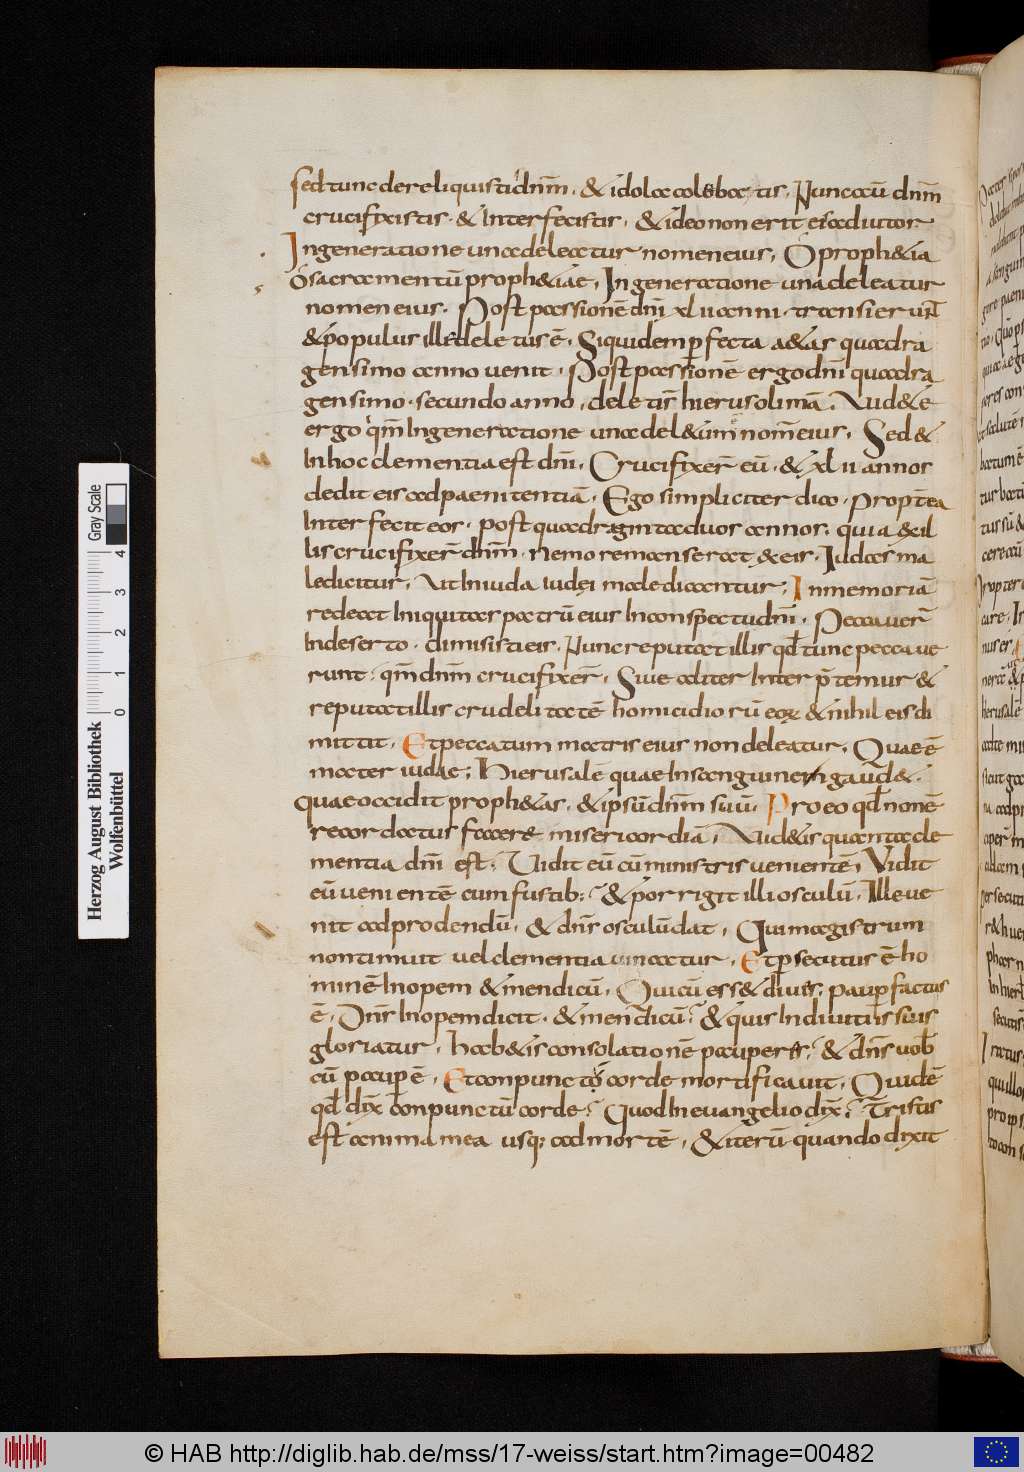 sed tunc dereliquisti dn̄m · & idola colebatis · Nunc aū dn̄m
crucifixistis · & interfecistis · & ideo non erit ei adiutor ·
In generatione una deleatur nomen eius, O proph&ia
o sacramentū proph&iae, In generatione una deleatur
nomen eius · Post passionē dn̄i xl ii anni · transierun̄t
& populus ille deletus ē · Siquidem p̄fecta a&as quadra
gensimo anno venit · Post passionē ergo dn̄i quadra
gensimo · secundo anno, delet̄ est hierusolimā · Vid&e
ergo qm̄ in generatione una del&um nom̄ eius · Sed &
in hoc clementia est dn̄i, Crucifixer̄ eū · & xl ii annos
dedit eis ad paenitentiā · Ego simpliciter dico · propt̄ea
interfecit eos · post quadraginta duos annos; quia & il
lis crucifixer̄ dn̄m · nemo remanserat & eis · Iudas ma
ledicitur, Ut in iuda iudęi maledicantur, In memoriā
redeat iniquitas patrū eius in conspectu dn̄i · Peccaver̄
in deserto · dimisisti eis · Nunc reputat illis qđ tunc peccave
runt · qm̄ dn̄m crucifixer̄ · Sive aliter interp̄temur &
reputat illis crudelitatē homicidiorū eoꝝ & nihil eis di
mittit · Et peccatum matris eius non deleatur, Quae ē
mater iudae; Hierusalē quae in sanguinem gaud& ·
quae occidit proph&as · & ipsū dn̄m suū · Pro eo qđ non ē
recordatus facere misericordiā, Vid&is quanta cle
mentia dn̄i est · Vidit eū cū ministris venientē, Vidit
eū venientē cum fustib; · & porrigit illi osculū, Ille ve
nit ad prodendū, & dn̄s osculū dat, Qui magistrum
non timuit vel clementia vincatur, Et p̄secutus ē ho
minē inopem & mendicū, Qui cū ess& dives; paup̄ factus
ē, Dn̄s inopem dicit · & mendicū · & quis in divitiis suis
gloriatur, hab&is consolationē pauperes; & dn̄s vob̄
cū paup̄ ē, Et conpuncto corde mortificavit, Quid ē
qđ dix̄ conpunctū corde · Quod in evangelio dix̄; Tristis
est anima mea usq; ad mortē, & iterū quando dixit
Herzog August Bibliothek
Wolfenbüttel
Gray Scale
0 1 2 3 4
© HAB http://diglib.hab.de/mss/17-weiss/start.htm?image=00482